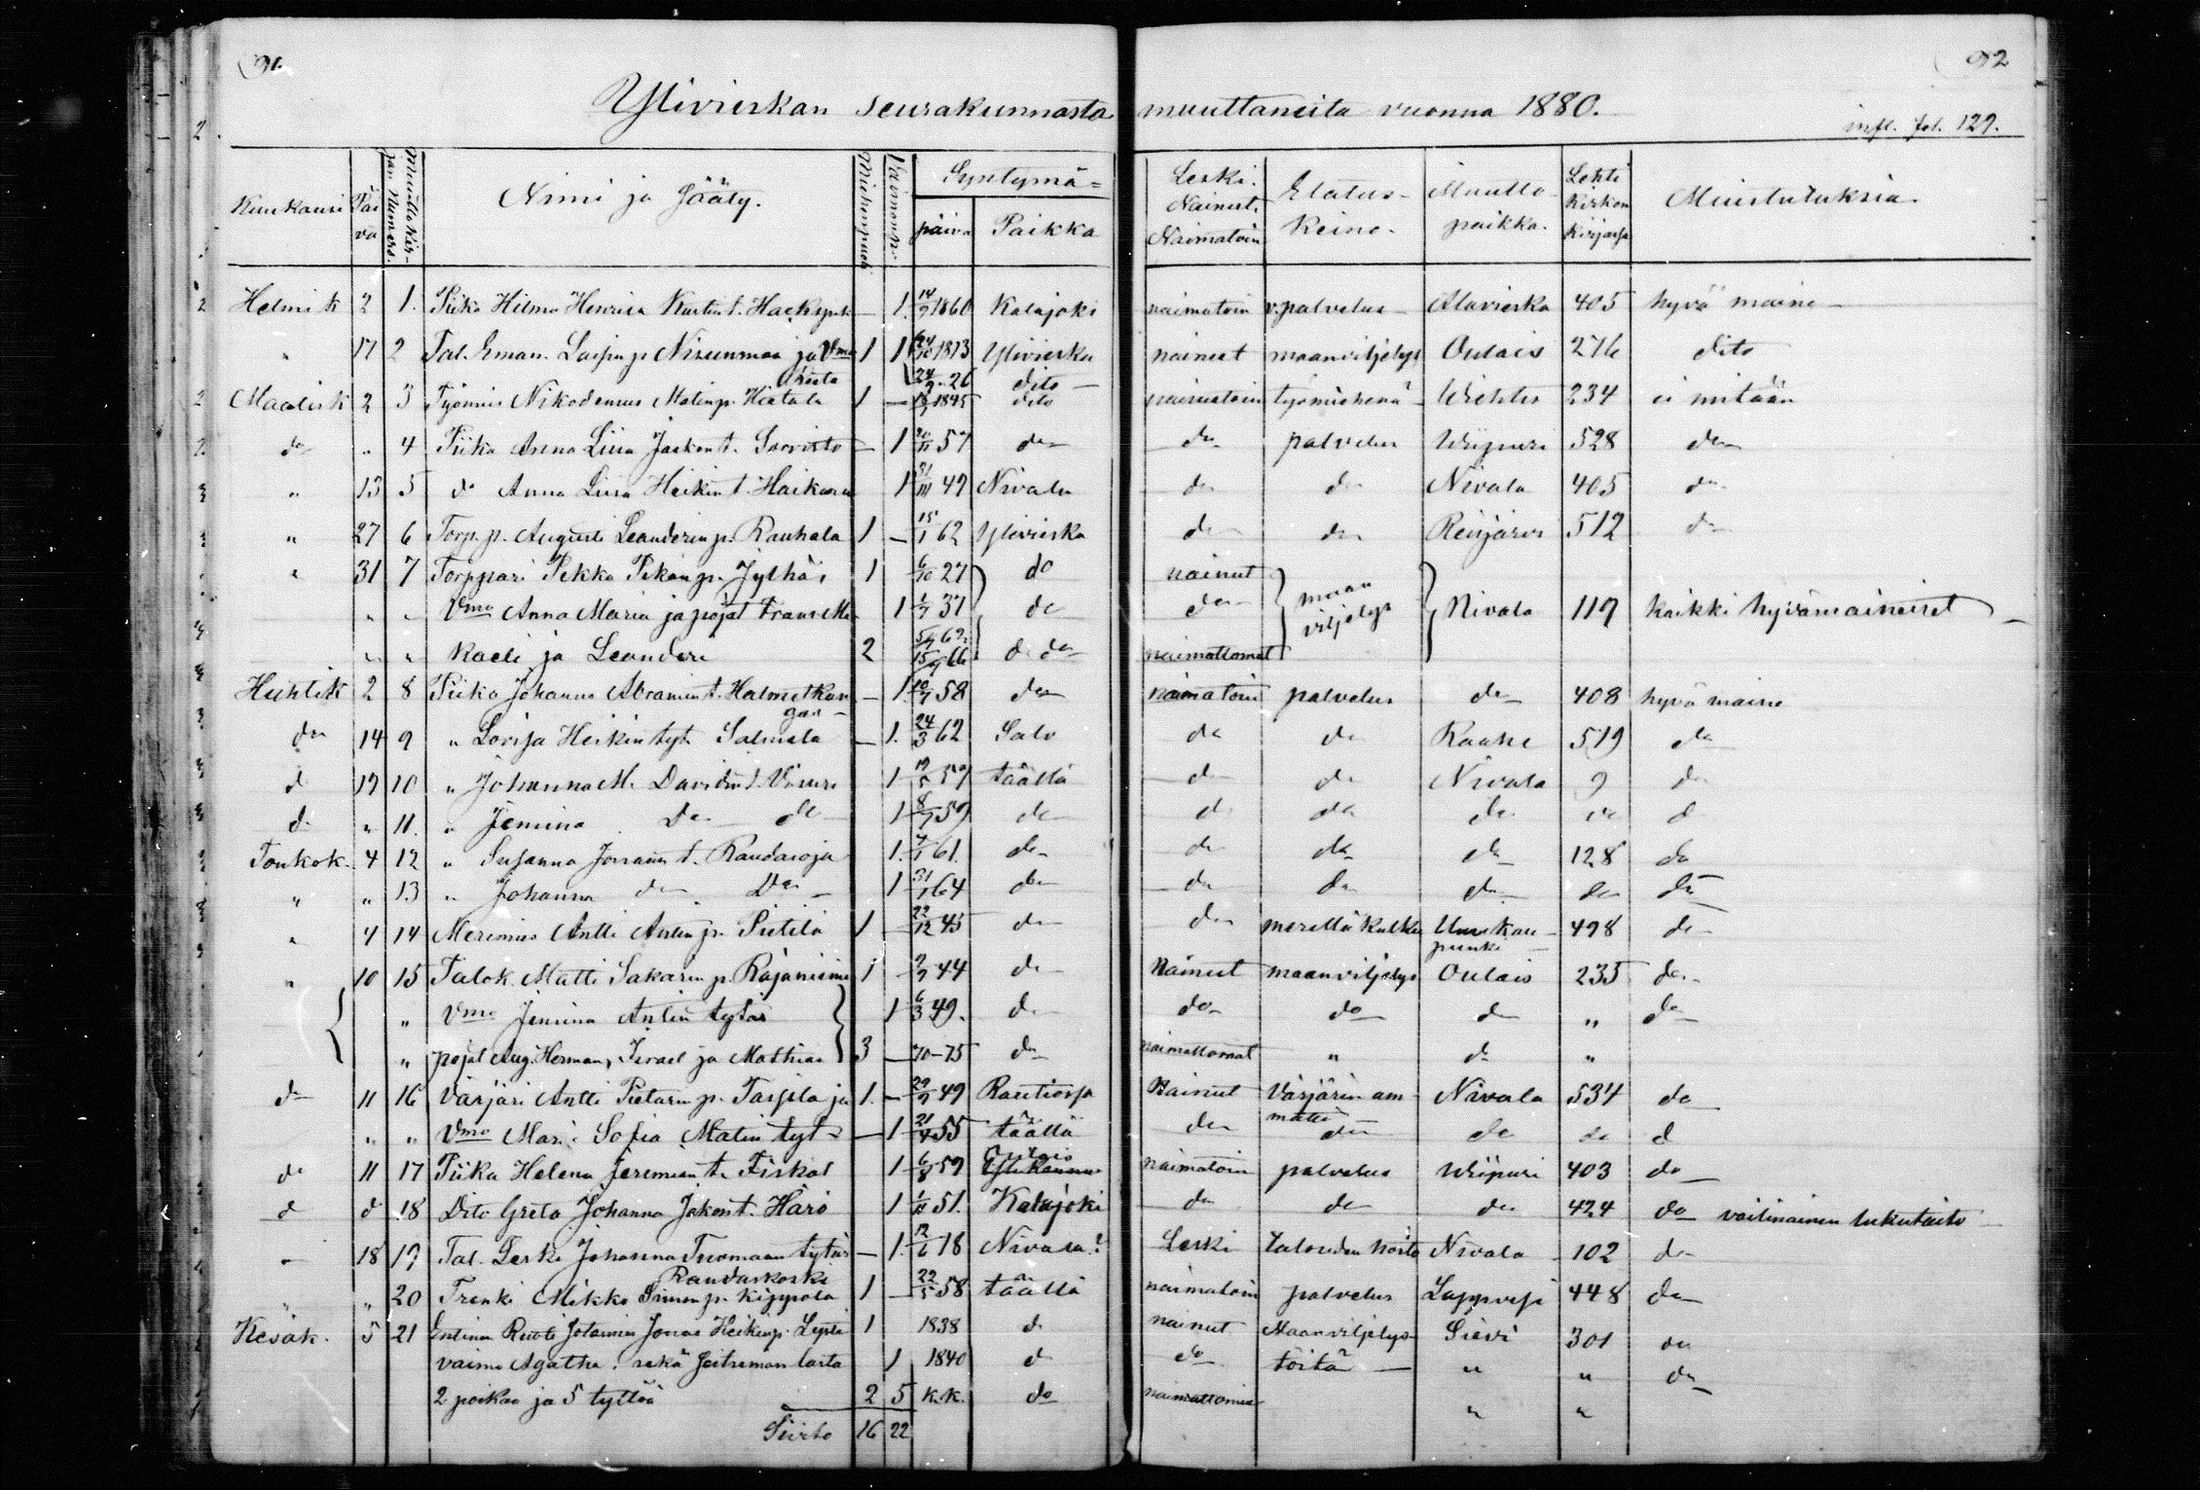 91.
92
Ylivieskan seurakunnasta muuttaneita vuonna 1880.
infl. fol. 129.
Kuukausi Päivä Muuttokirjan Numero. Nimi ja Sääty. Miehenpuoli Vaimonp. Syntymä= päivä Paikka Leski. Nainut. Naimatoin Elatus-keino. Muutto-paikka. Lehti Kirkon Kirjassa Muistutuksia
Helmik 2 1. Piika Hilma Henrica — 1. 14/9 1860 Kalajoki naimatoin palvelus Alavieska 405 hyvä maine
" 17 2 Tal. Eman. Nisunmaa ja Vmo 1 1 24/10 1813 Ylivieska nainut maanviljelys Oulais 276 dito
24/9 26 dito
Maalisk 2 3 Työmies Nikodemus Matinp. Hietala 1 — 1845 dito naimatoin työmiehenä 234 ei mitään
do " 4 Piika Anna Liisa Jaakon t. Saaristo — 1 57 do do palvelus Wiipuri 528 do
" 13 5 do Anna Liisa Heikin t. 1 31/III 49 Nivala do do Nivala 405 do
" 27 6 Torp. p. Augusti Leanderin p. Rauhala 1 — 15/1 62 Ylivieska do do Reisjärvi 512 do
" 31 7 Torppari Pekka Pekan p. Jylhä 1 6/10 27 do nainut maan viljelys Nivala 119 kaikki hyvämaineiset
" " Vmo Anna Maria ja pojat Frans Mi 1 1/7 37 do do
" " kaeli ja Leanderi 2 62 15/9 66 do do naimattomat
Huhtik 2 8 Piika Johanna Abramin t. Halmetkan — 1. 10/7 58 do naimatoin palvelus do 408 hyvä maine
gas
do 14 9 " Lovisa Heikin tyt. Salmela — 1. 24/3 62 Salo do do Raahe 519 do
d 19 10 " Johanna M. Davidin t. Visuri 1 19/5 57 täällä do do Nivala 9 do
d " 11. " Jemina Do do 1 8/7 59 do d do do d
Toukok. 4 12 " Susanna t. Raudasoja 1. 7/1 61. do do do do 128 do
" " 13 " Johanna do Do 1 31/1 64 do do do do do do
" 4 14 Merimies Antti Antin p. Pietilä 1 — 22/12 45 do do merellä kulku Uusikau-punki 498 do
" 10 15 Talok. Matti Sakarin p. Rajaniemi 1 9/9 44 do Nainut maanviljelys Oulais 235 do
" Vmo Jemina Antin tytär 1 6/3 49. d do do do " do
" pojat Aug. Herman, Israel ja Mathias 3 — 70–75 do naimattomat " do "
do 11 16 Värjäri Antti Pietarin p. ja 1. — 29/9 49 Rautiossa Nainut Värjärin am-matti Nivala 534 do
" " Vmo Mari Sofia Matin tyt — 1 21/4 55 täällä do do do do d
do 11 17 Piika Helena Jeremian t. Fiskal 1 6/8 59 Oulais naimatoin palvelus Wiipuri 403 do
d d 18 Dito Greta Johanna Jakon t. Häro 1 51. Kalajoki do do do 424 do vaillinainen lukutaito
" 18 19 Tal. Leski Johanna Tuomaan tytär — 1. 12/6 18 Nivala? Leski talouden hoito Nivala 102 do
Raudaskoski
" " 20 Trenki Mikko Simon p. Kippola 1 — 22/5 58 täällä naimatoin palvelus 448 do
Kesäk. 5 21 Entinen Jonas Heikin p. 1 1838 d nainut Maanviljelys Sievi 301 do
vaimo Agatha. sekä seitsemän lasta 1 1840 d do töitä " " do
2 poikaa ja 5 tyttöä 2 5 k.k. do naimattomia " "
Siirto 16 22